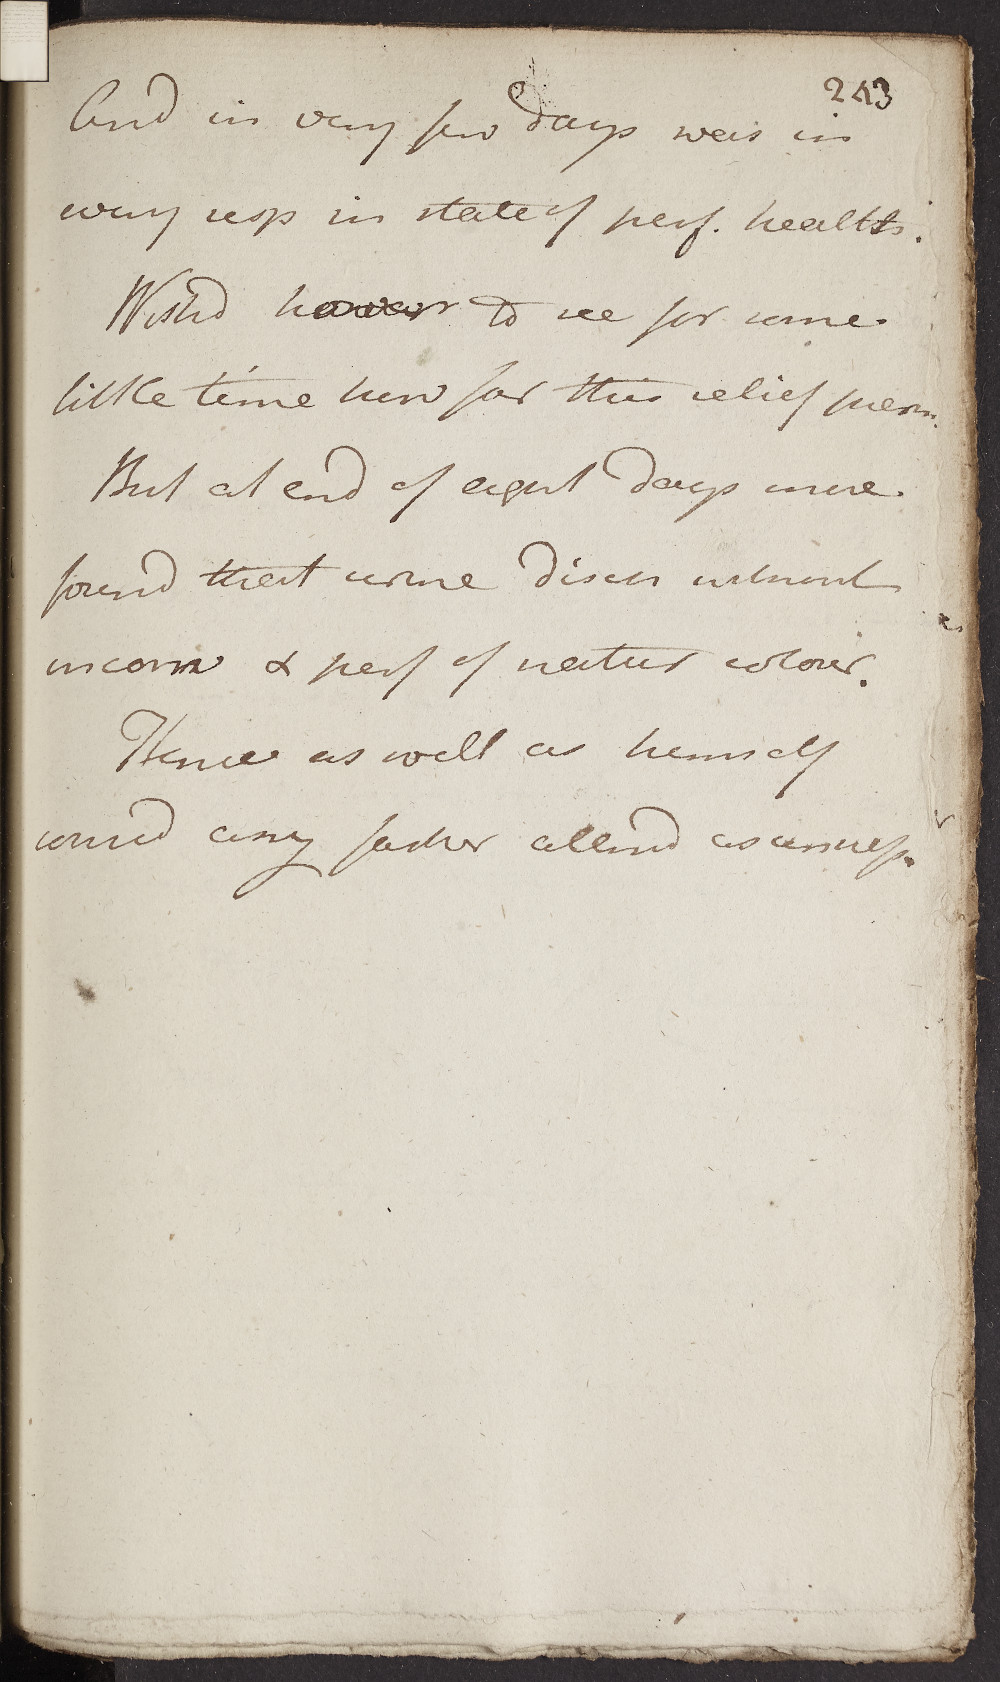 243
And in very few days was in
every resp in state of perf. health.
Wish'd however to see for some
little time how far this relief perm.
But at end of eight days more
found that urine disch without
inconv & perf of natur colour.
Hence as well as himself
consid any farther attend as unness.